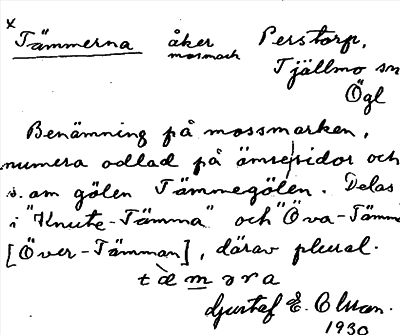 x
Tämmerna åker Perstorp,
mosmark
Tjällmo sn
Ögl
Benämning på mossmarken,
numera odlad på ömse sidor och
s. om gölen Tämmegölen. Delas
i "Knute-Tämma" och "Öva-Tämm
[Över-Tämman], därav plural.
Gustaf E. Olsson.
1930